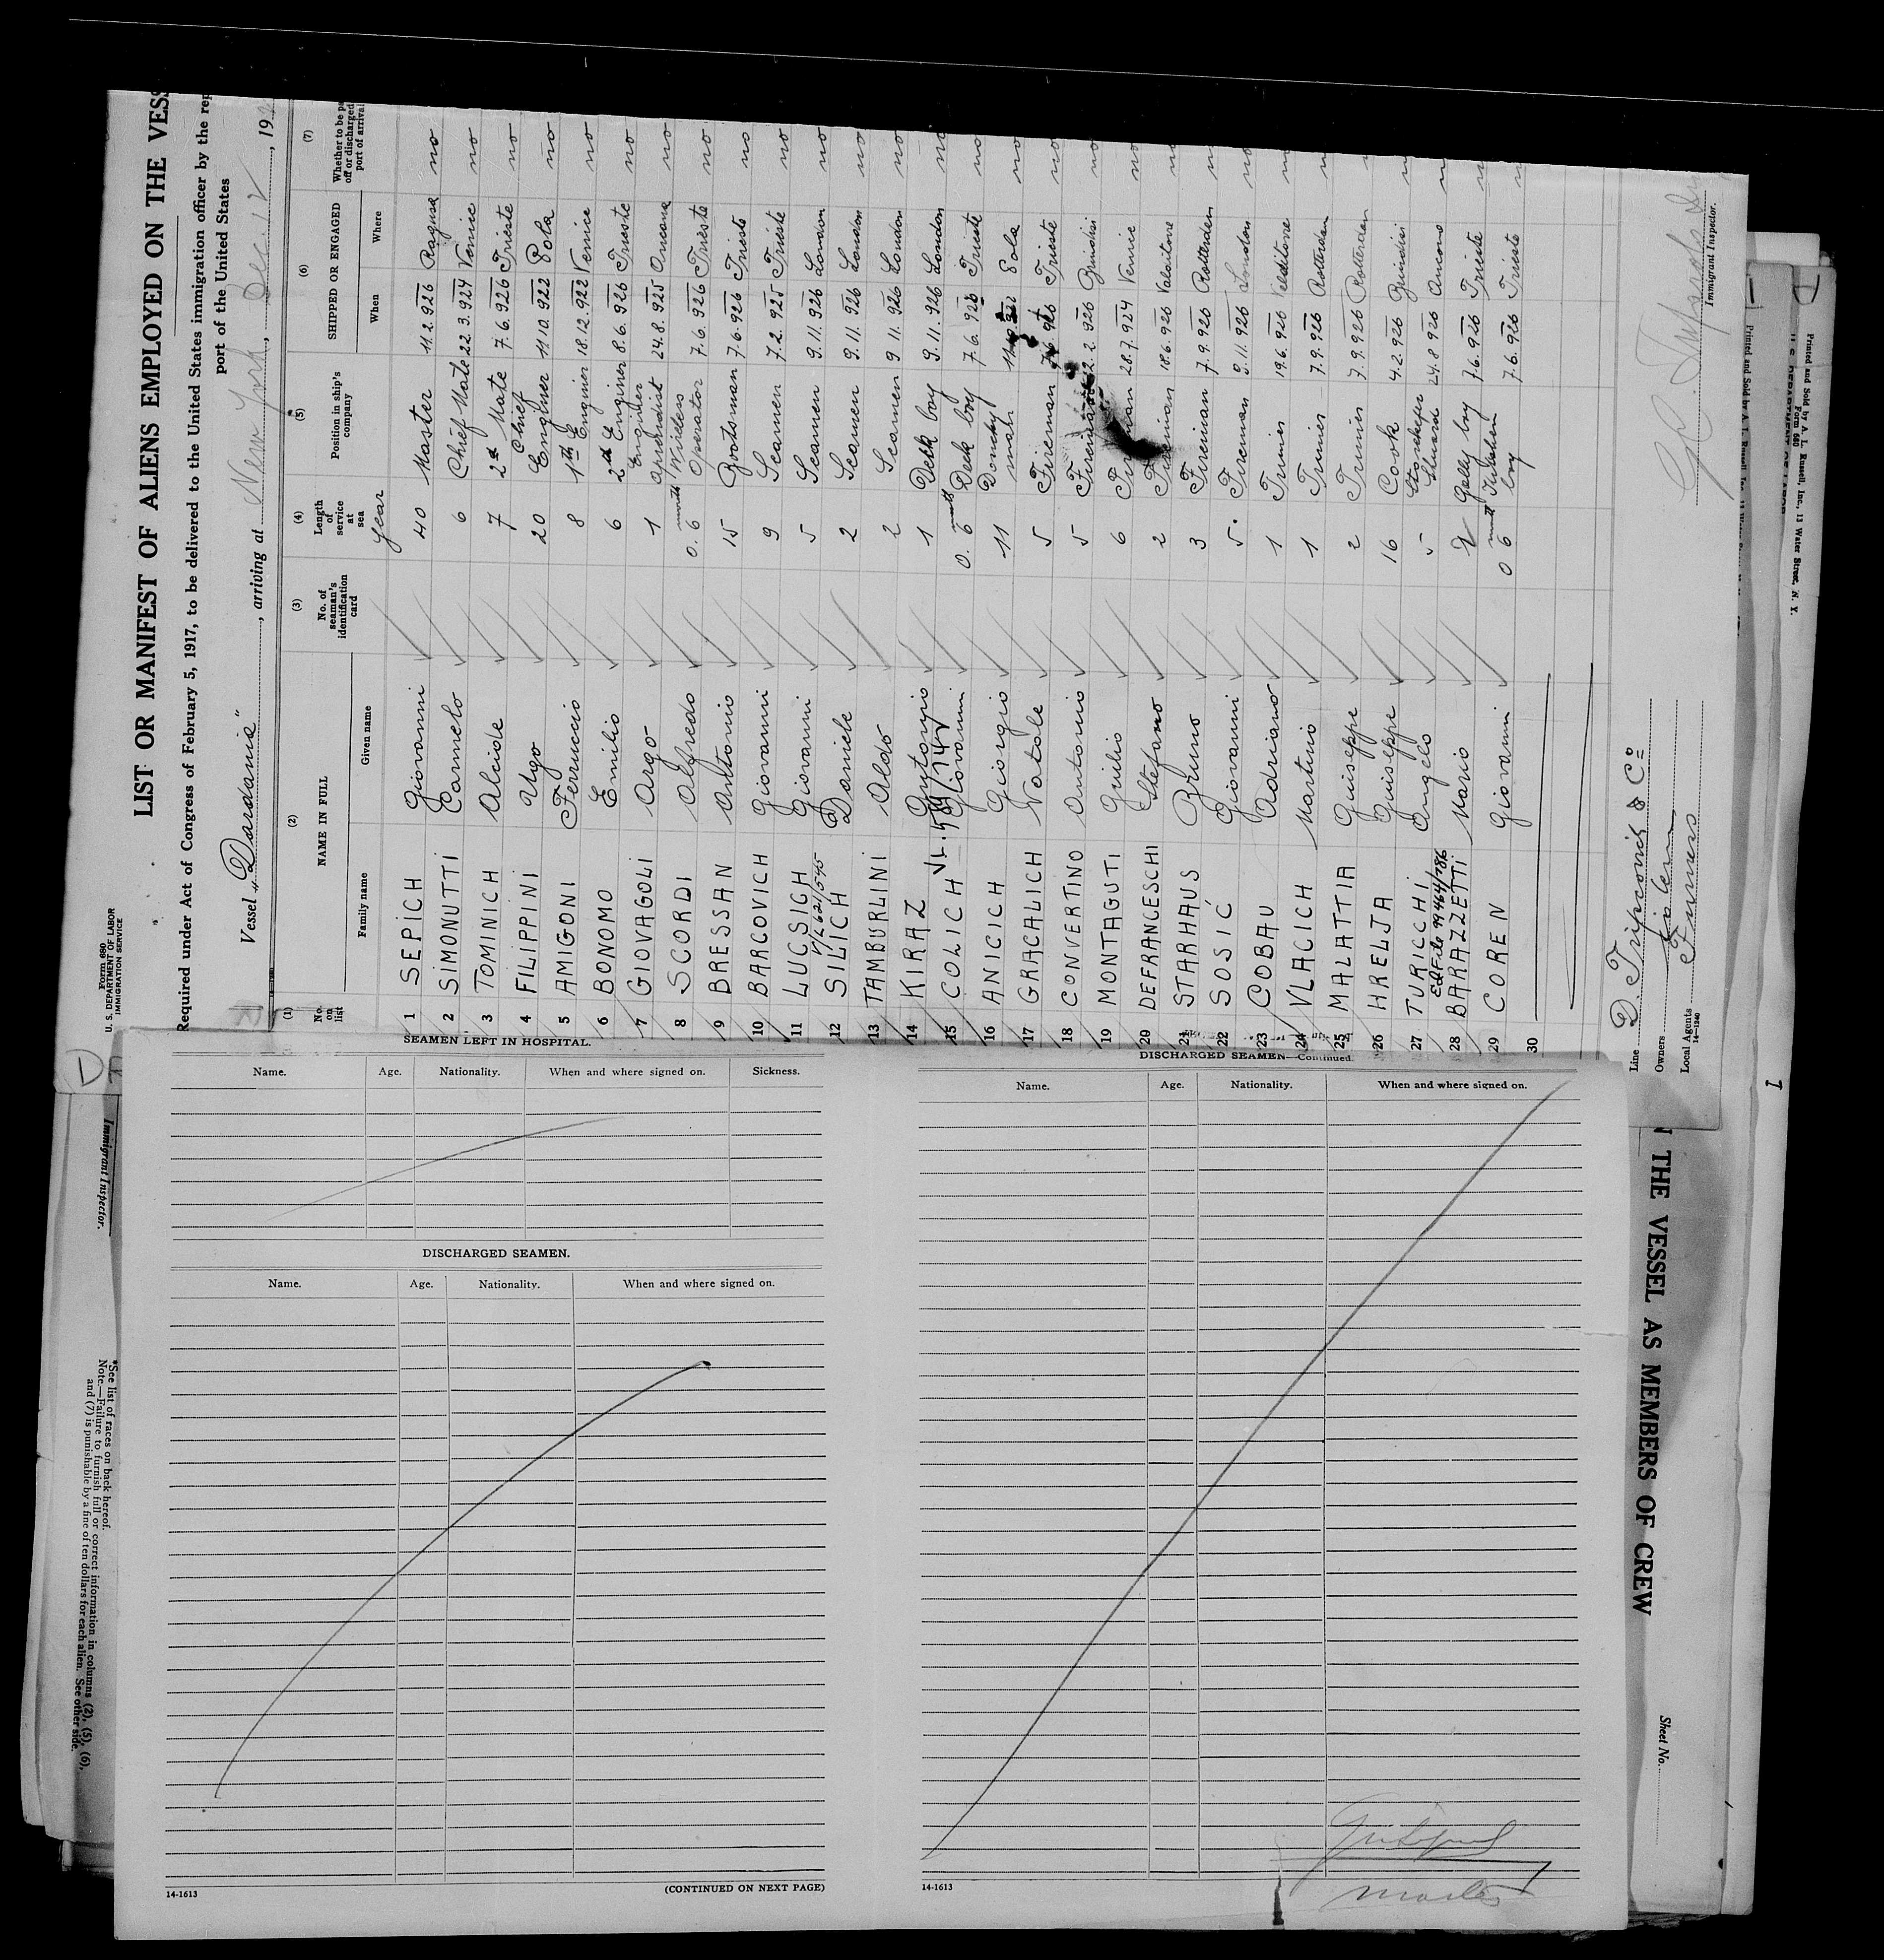 Form 680
U. S. DEPARTMENT OF LABOR
IMMIGRATION SERVICE
LIST OR MANIFEST OF ALIENS EMPLOYED ON THE VESS
Required under Act of Congress of February 5, 1917, to be delivered to the United States immigration officer by the rep
port of the United States
Vessel „Dardania", arriving at New York, Dec. 1, 19
(1) (2) (3) (4) (5) (6) (7)
No. on list NAME IN FULL No. of seaman's identification card Length of service at sea Position in ship's company SHIPPED OR ENGAGED Whether to be pa off or discharged port of arrival
Family name Given name When Where
year
1 SEPICH Giovanni 40 Master 11.2.926 Ragusa no
2 SIMONUTTI Carmelo 6 Chef Mate 22.3.924 Venice no
3 TOMINICH Alcide 7 2d Mate 7.6.926 Trieste no
4 FILIPPINI Ugo 20 Chief Enginer 11.10.922 Pola no
5 AMIGONI Ferruccio 8 1th Enginer 18.12.922 Venice no
6 BONOMO Emilio 6 2th Enginer 8.6.926 Trieste no
7 GIOVAGOLI Argo 1 Enginer 24.8.925 Ancona no
8 SCORDI Alfredo 0.6 month Wireless Operator 7.6.926 Trieste no
9 BRESSAN Antonio 15 Bootsman 7.6.926 Trieste no
10 BARCOVICH Giovanni 9 Seamen 7.2.925 Trieste no
11 LUCSICH Giovanni 5 Seamen 9.11.926 London no
12 SILICH Daniele 2 Seamen 9.11.926 London no
13 TAMBURLINI Aldo 2 Seamen 9.11.926 London no
14 KIRAZ 1 Dekk boy 9.11.926 London no
15 COLICH Giovanni 0.6 month Dekk boy 7.6.926 Trieste no
16 ANICICH Giorgio 11 Donky man Pola no
17 GRACALICH Natale 5 Fireman 7.6.926 Trieste no
18 CONVERTINO Antonio 5 Fireman 2.926 Brindisi no
19 MONTAGUTI Giulio 6 28.7.924 Venice no
20 DEFRANCESCHI Stefano 2 Fireman 18.6.926 no
21 STARHAUS Bruno 3 Fireman 7.9.926 Rotterdam
22 SOSIĆ Giovanni 5 Fireman 9.11.926 London no
23 COBAU Adriano 1 Trimer 19.6.926
24 VLACICH Martino 1 Trimer 7.9.926 Rotterdam
25 MALATTIA Guiseppe 2 Trimer 7.9.926 Rotterdam
26 HRELJA Guiseppe 16 Cook 4.2.926 Brindisi
27 TURICCHI Angelo 5 24.8.926 Ancona
28 BARAZZETTI Mario 2 Gally boy 7.6.926 Trieste
29 COREN Giovanni 0 6 month boy 7.6.926 Trieste
30
Line D. Tripcovich & Co
Owners
Local Agents Furness
14—1240
Immigrant Inspector.
SEAMEN LEFT IN HOSPITAL.
Name. Age. Nationality. When and where signed on. Sickness.
DISCHARGED SEAMEN.
Name. Age. Nationality. When and where signed on.
14-1613 (CONTINUED ON NEXT PAGE)
DISCHARGED SEAMEN—Continued.
Name. Age. Nationality. When and where signed on.
14-1613
Master
Immigrant Inspector.
*See list of races on back hereof.
Note.—Failure to furnish full or correct information in columns (2), (5), (6),
and (7) is punishable by a fine of ten dollars for each alien. See other side.
THE VESSEL AS MEMBERS OF CREW
Sheet No.
Printed and Sold by A. L. Russell, Inc., 13 Water Street, N. Y.
Form 680